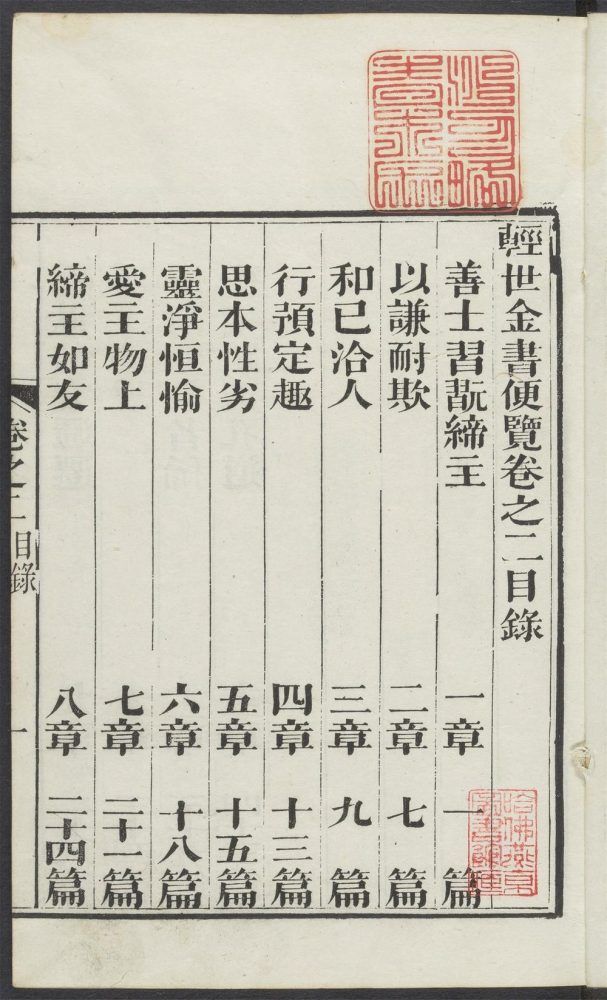 輕世金書便覽卷之二目錄
善士習翫締主 一章 一篇
以謙耐欺 二章 七篇
和已洽人 三章 九篇
行預定趣 四章 十三篇
思本性劣 五章 十五篇
靈淨恒愉 六章 十八篇
愛主物上 七章 二十一篇
締主如友 八章 二十四篇
卷之二目錄 一
哈佛燕京
圖書館